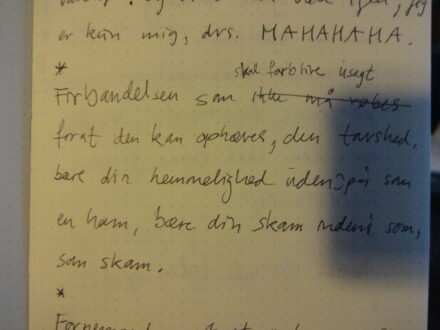 igen, jeg
er kun mig, dvs. MAHAHAHA.
*
skal forblive usagt
Forbandelsen som ikke må røbes
for at den kan ophæves, den tavshed,
bære din hemmelighed udenpå som
en ham, bære din skam indeni som,
som skam.
*